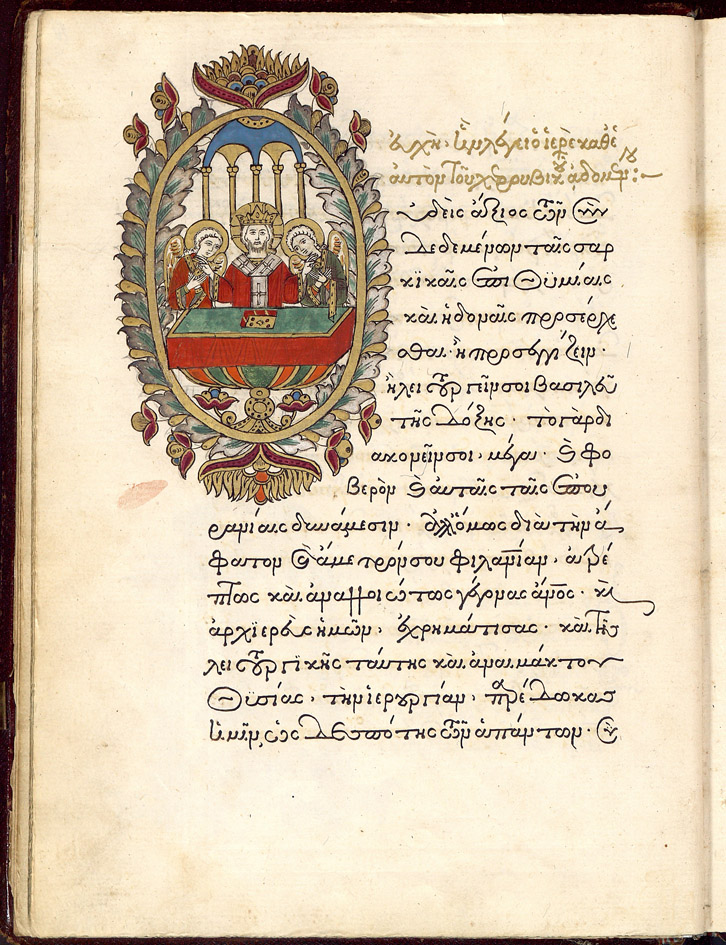 εὐχὴ, ἣν λέγει ὁ ἱερεὺς καθ' ἑ
αυτὸν τοῦ χερουβικοῦ ἀδομένου :-
Οὐδεὶς ἄξιος τῶν συν
δεδεμένων ταῖς σαρ
κικαῖς ἐπιθυμίαις
καὶ ἡδοναῖς προσέρχε
σθαι· ἢ προσεγγίζειν·
ἢ λειτουργεῖν σοι βασιλεῦ
τῆς δόξης· τὸ γὰρ δι
ακονεῖν σοι, μέγα· καὶ φο
βερὸν καὶ αὐταῖς ταῖς ἐπου
ρανίαις δυνάμεσιν· ἀλλ' ὅμως διὰ τὴν ἄ
φατον καὶ ἀμέτρητόν σου φιλανίαν, ἀτρέ
πτως καὶ ἀναλλοιώτως γέγονας ἄνος· καὶ
ἀρχιερεὺς ἡμῶν, ἐχρημάτισας· καὶ τῆς
λειτουργικῆς ταύτης καὶ ἀναιμάκτου
θυσίας, τὴν ἱερουργίαν, παρέδωκας
ἡμῖν, ὡς δεσπότης τῶν ἁπάντων· σὺ